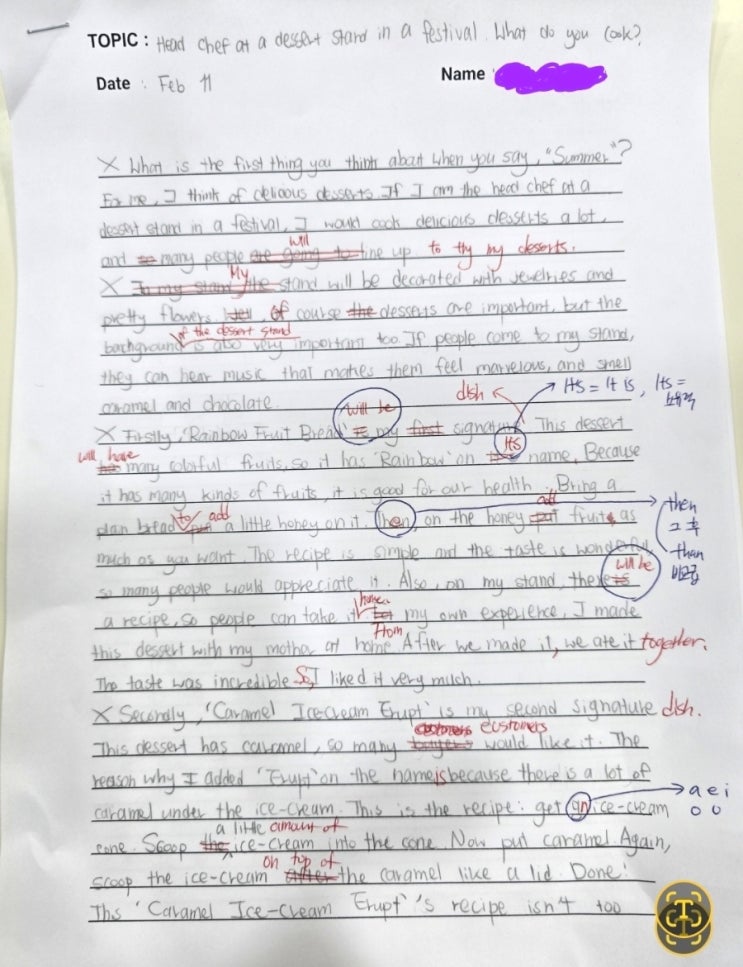 TOPIC : Head chef at a dessert stand in a festival. What do you cook?
Date : Feb 11 Name
X What is the first thing you think about when you say, "Summer"?
For me, I think of delicious desserts. If I am the head chef at a
dessert stand in a festival, I would cook delicious desserts a lot,
will
and so many people are going to line up to try my deserts.
My
X In my stand, the stand will be decorated with jewelries and
pretty flowers. Of course the desserts are important, but the
of the dessert stand
background is also very important too. If people come to my stand,
they can hear music that makes them feel marvelous, and smell
caramel and chocolate.
dish Its = It is, Its = 소유격
will be
X Firstly, 'Rainbow Fruit Bread' is my first signature. This dessert
will have Its
has many colorful fruits, so it has 'Rainbow' on name. Because
it has many kinds of fruits, it is good for our health. Bring a
to add add then
plan bread put a little honey on it. Then, on the honey put fruits as
그 후
than
비교급
much as you want. The recipe is simple and the taste is wonderful,
will be
so many people would appreciate it. Also, on my stand, there is
home
a recipe, so people can take it my own experience, I made
From
this dessert with my mother at home. After we made it, we ate it together.
The taste was incredible. So, I liked it very much.
X Secondly, 'Caramel Ice-cream Erupt' is my second signature dish.
customers
This dessert has caramel, so many buyers would like it. The
reason why I added 'Erupt' on the name is because there is a lot of
a e i
caramel under the ice-cream. This is the recipe: get an ice-cream
o u
a little amount of
cone. Scoop the ice-cream into the cone. Now put caramel. Again,
on top of
scoop the ice-cream after the caramel like a lid. Done!
This 'Caramel Ice-cream Erupt' 's recipe isn't too